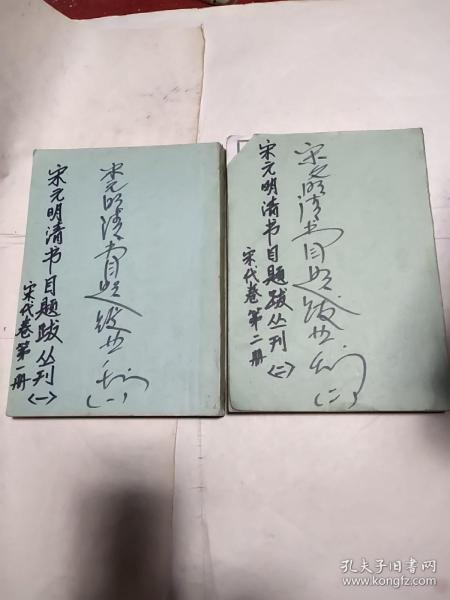 宋元明清书目题跋丛刊(一)
宋代卷第一册
宋元明清书目题跋丛刊
(一)
宋元明清书目题跋丛刊(二)
宋代卷第二册
宋元明清书目题跋丛刊
(二)
孔夫子旧书网
www.kongfz.com